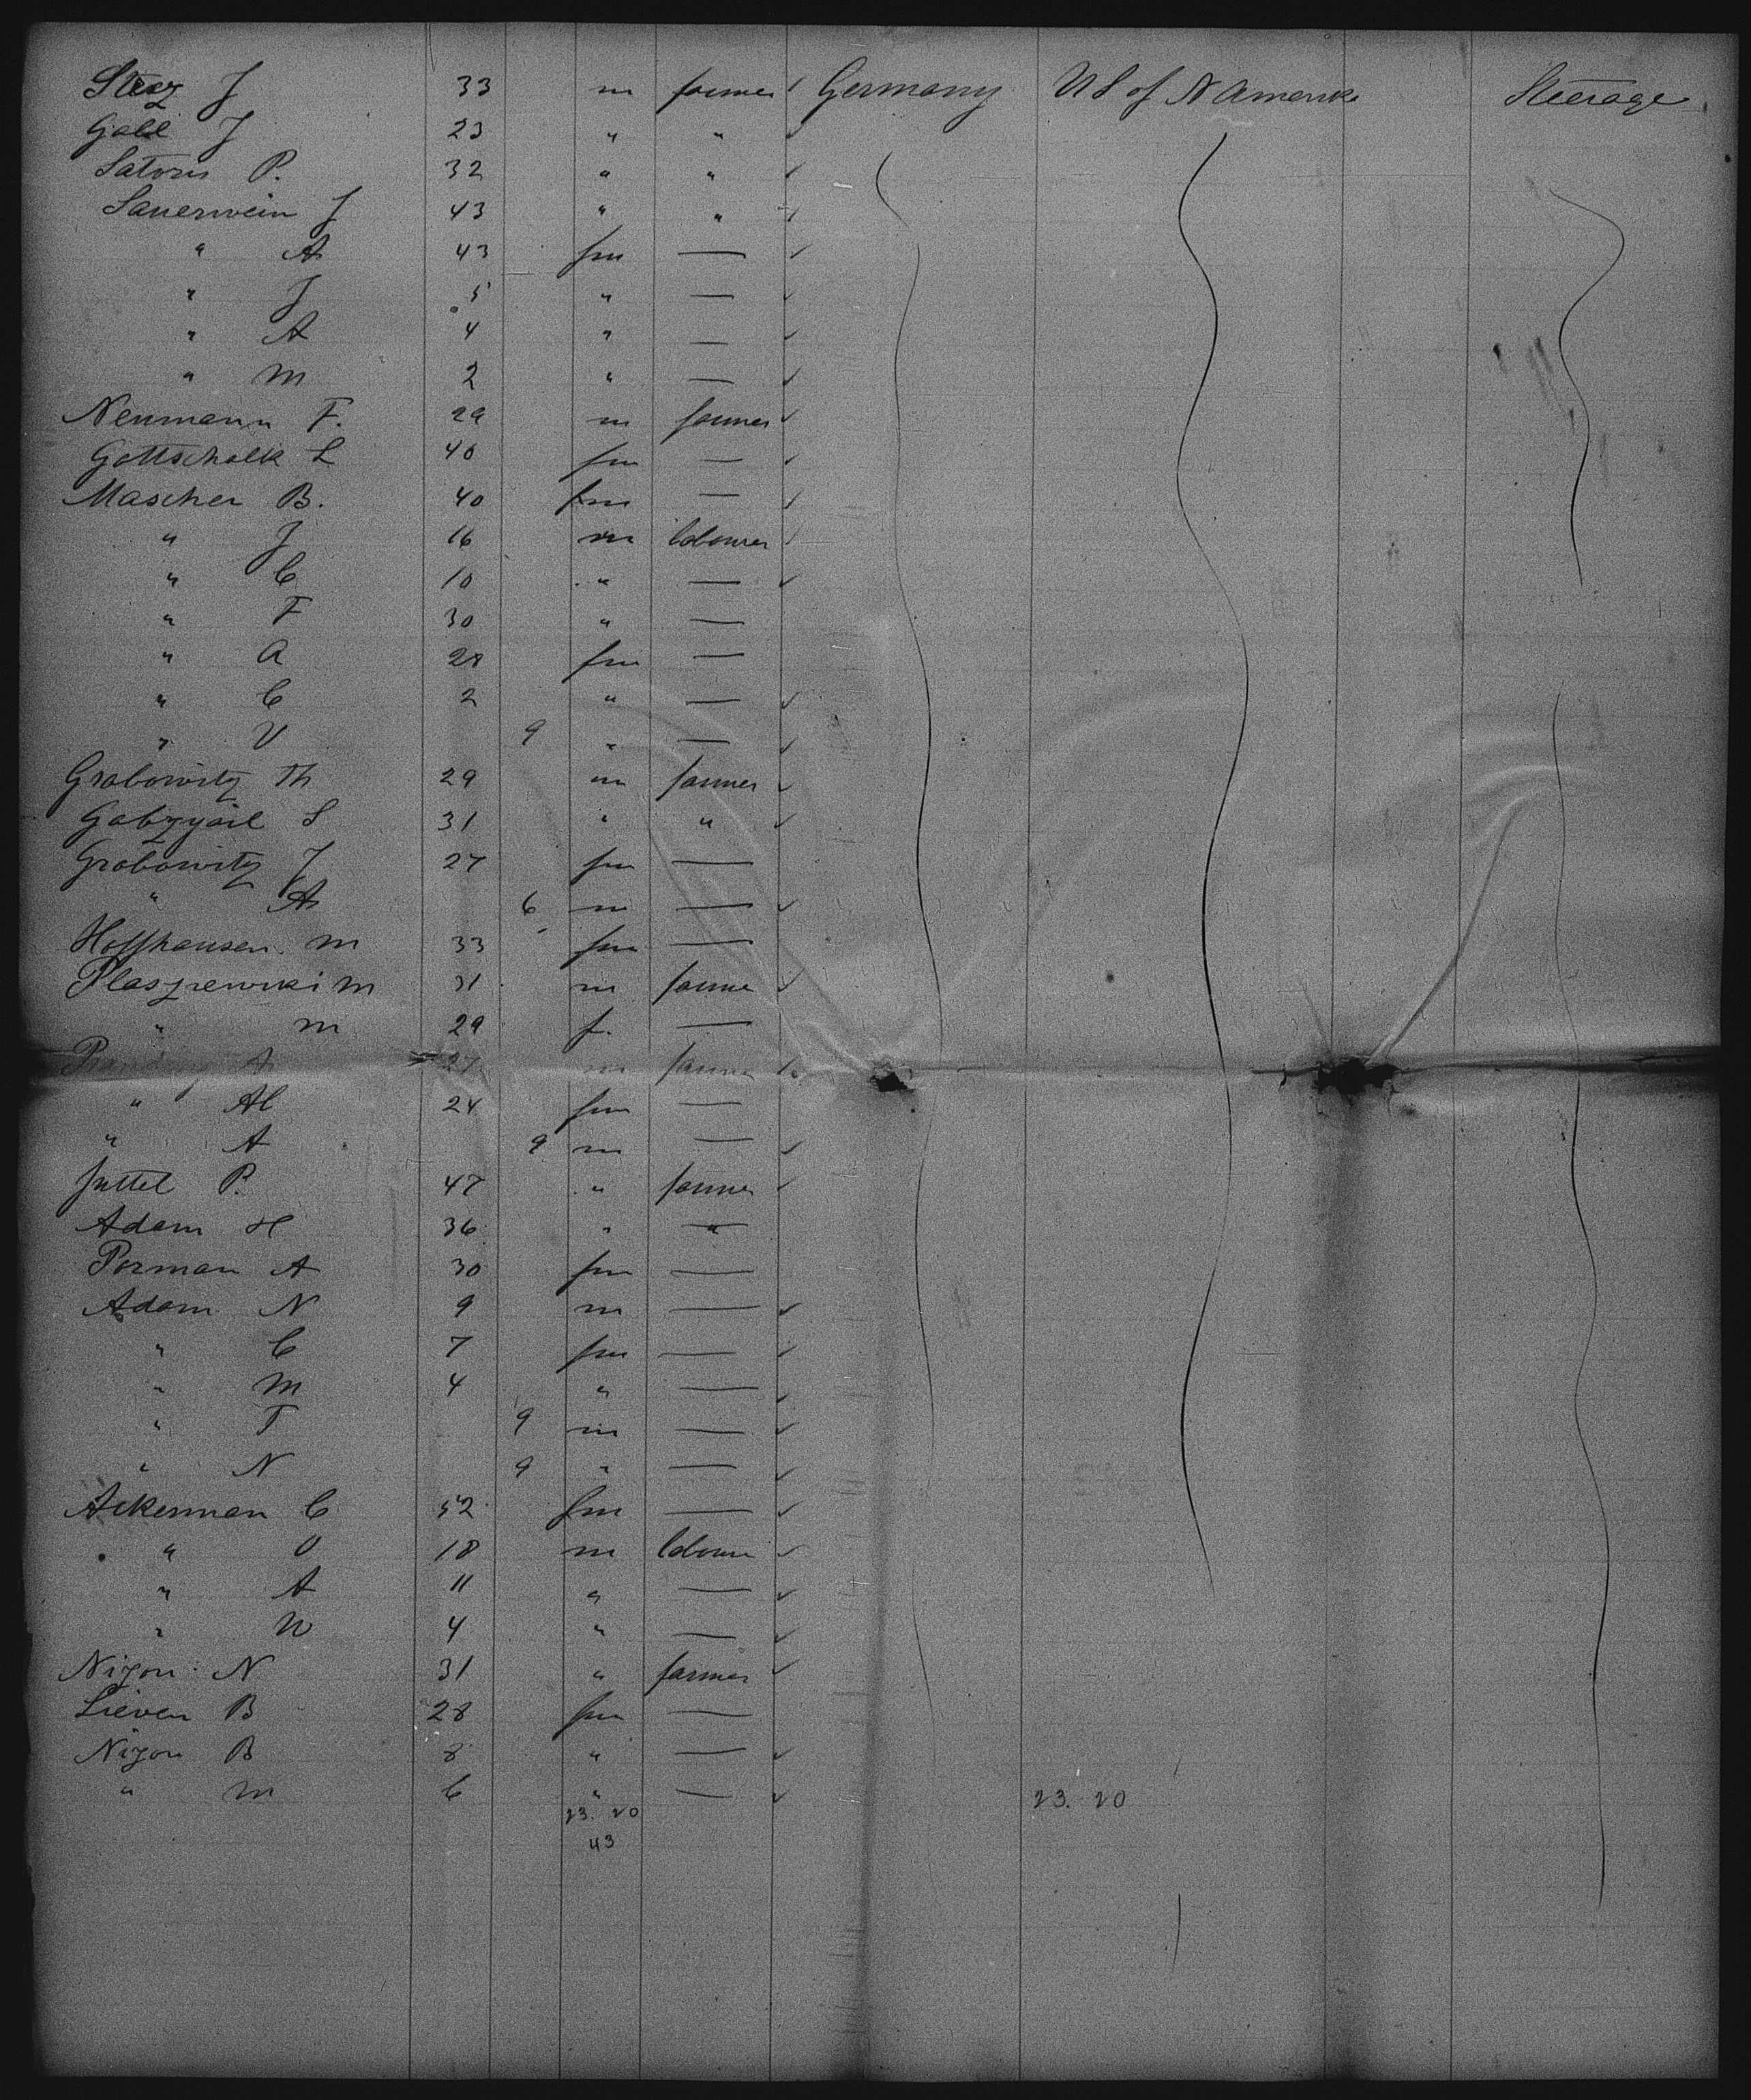 Steez J 33 m farmer Germany U S of N Amerika Steerage
Gall J 23 " "
Satoris P. 32 " "
Sauerwein J 43 " "
" A 43 fm —
" J 5 " —
" A 4 " —
" M 2 " —
Neumann F. 29 m farmer
Gottschalk L 40 fm —
Mascher B. 40 fm —
" J 16 m labourer
" C 10 " —
" F 30 " —
" A 28 fm —
" C 2 " —
" V 9 " —
Grabowitz Th 29 m farmer
Gabzyail S 31 " "
Grabowitz J 27 fm —
" A 6 m —
Hoffhausen M 33 fm —
Plaszewski M 31 m farmer
" M 29 f. —
A 27 m farmer
" Al 24 fm —
" A 9 m —
Juttel P. 47 " farmer
Adam H 36 " "
Porman A 30 fm —
Adam N 9 m —
" C 7 fm —
" M 4 " —
" T 9 m —
" N 9 " —
Ackerman C 52 fm —
" O 18 m labourer
" A 11 " —
" W 4 " —
Nizon N 31 " farmer
Lieven B 28 fm —
Nizon B 8 " —
" M 6 " —
23. 20 23. 20
43